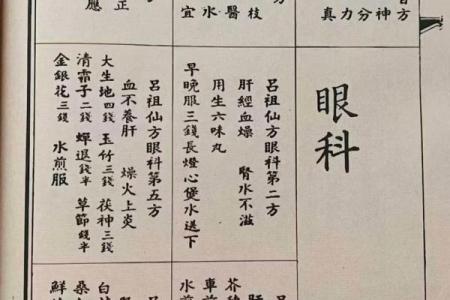 方
神
分
力
真
方
枝
醫
水
宜
正
應
眼科
呂祖仙方眼科第二方
肝經血燥 腎水不滋
用生六味丸
早晚服三錢長燈心煲水送下
呂祖仙方眼科第五方
血不養肝 燥火上炎
大生地四錢 玉竹三錢 茯神三錢
清霜子二錢 蟬退錢半 草節錢半
金銀花三錢 水煎服
呂
肝
芥
車前
水煎
呂
白
桑
鮮